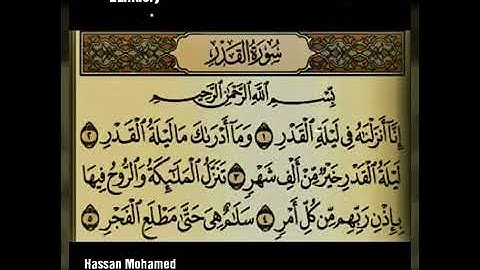 سُورَةُ القَدْرِ
بِسْمِ اللَّهِ الرَّحْمَٰنِ الرَّحِيمِ
إِنَّا أَنزَلْنَٰهُ فِى لَيْلَةِ ٱلْقَدْرِ ١ وَمَآ أَدْرَىٰكَ مَا لَيْلَةُ ٱلْقَدْرِ ٢
لَيْلَةُ ٱلْقَدْرِ خَيْرٌ مِّنْ أَلْفِ شَهْرٍ ٣ تَنَزَّلُ ٱلْمَلَٰٓئِكَةُ وَٱلرُّوحُ فِيهَا
بِإِذْنِ رَبِّهِم مِّن كُلِّ أَمْرٍ ٤ سَلَٰمٌ هِىَ حَتَّىٰ مَطْلَعِ ٱلْفَجْرِ ٥
Hassan Mohamed